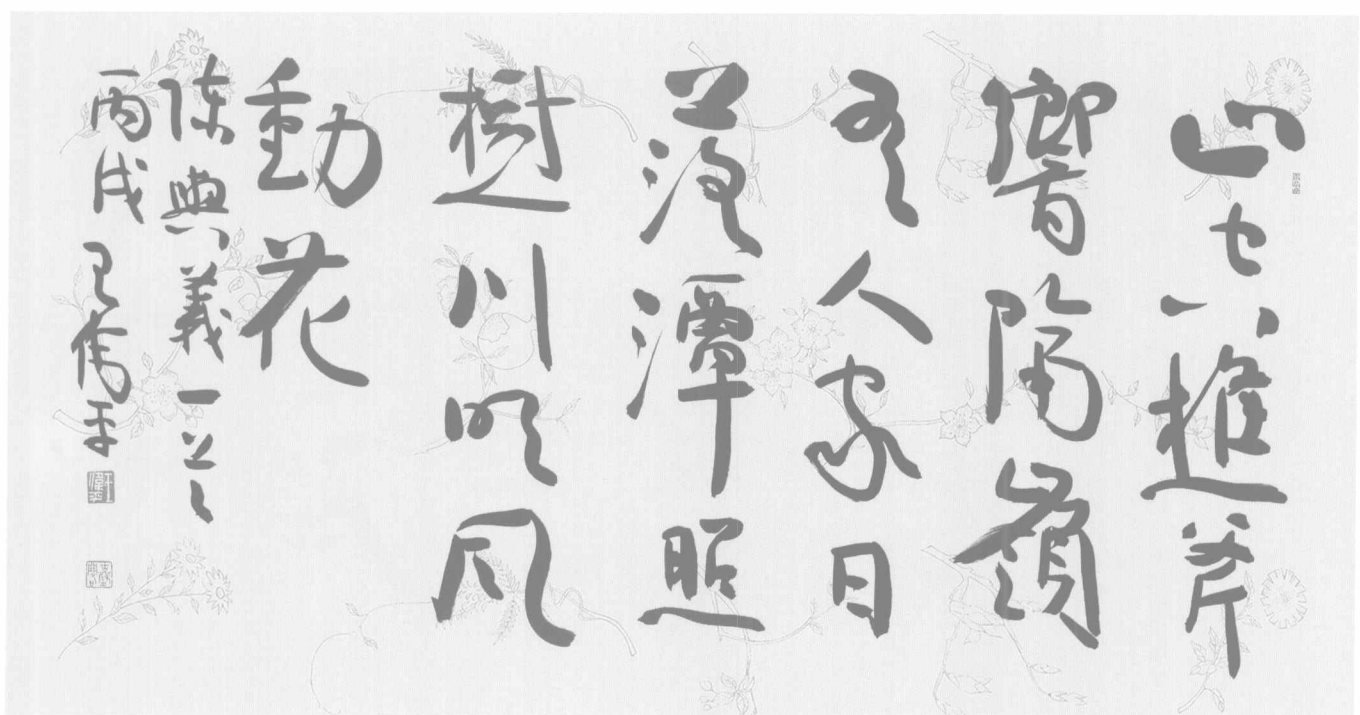 山空樵斧
響隔嶺
有人家日
落潭照
樹川明風
動花
陳與義一首
丙戌王偉平